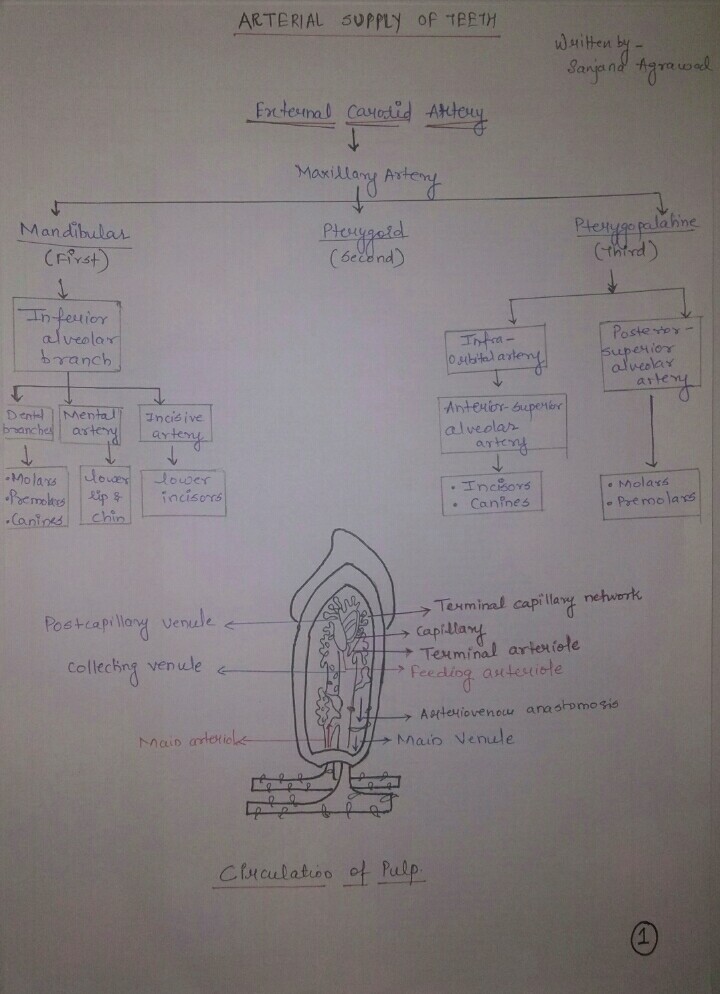 ARTERIAL SUPPLY OF TEETH
Written by -
Sanjana Agrawal
External Carotid Artery
Maxillary Artery
Mandibular
(First)
Pterygoid
(Second)
Pterygopalatine
(Third)
Inferior
alveolar
branch
Infra-
Orbital artery
Posterior-
superior
alveolar
artery
Dental
branches
Mental
artery
Incisive
artery
Anterior-superior
alveolar
artery
• Molars
• Premolars
• Canines
lower
lip &
chin
lower
incisors
• Incisors
• Canines
• Molars
• Premolars
Postcapillary venule
Terminal capillary network
Capillary
Terminal arteriole
Collecting venule
Feeding arteriole
Arteriovenous anastomosis
Main arteriole
Main Venule
Circulation of Pulp.
1